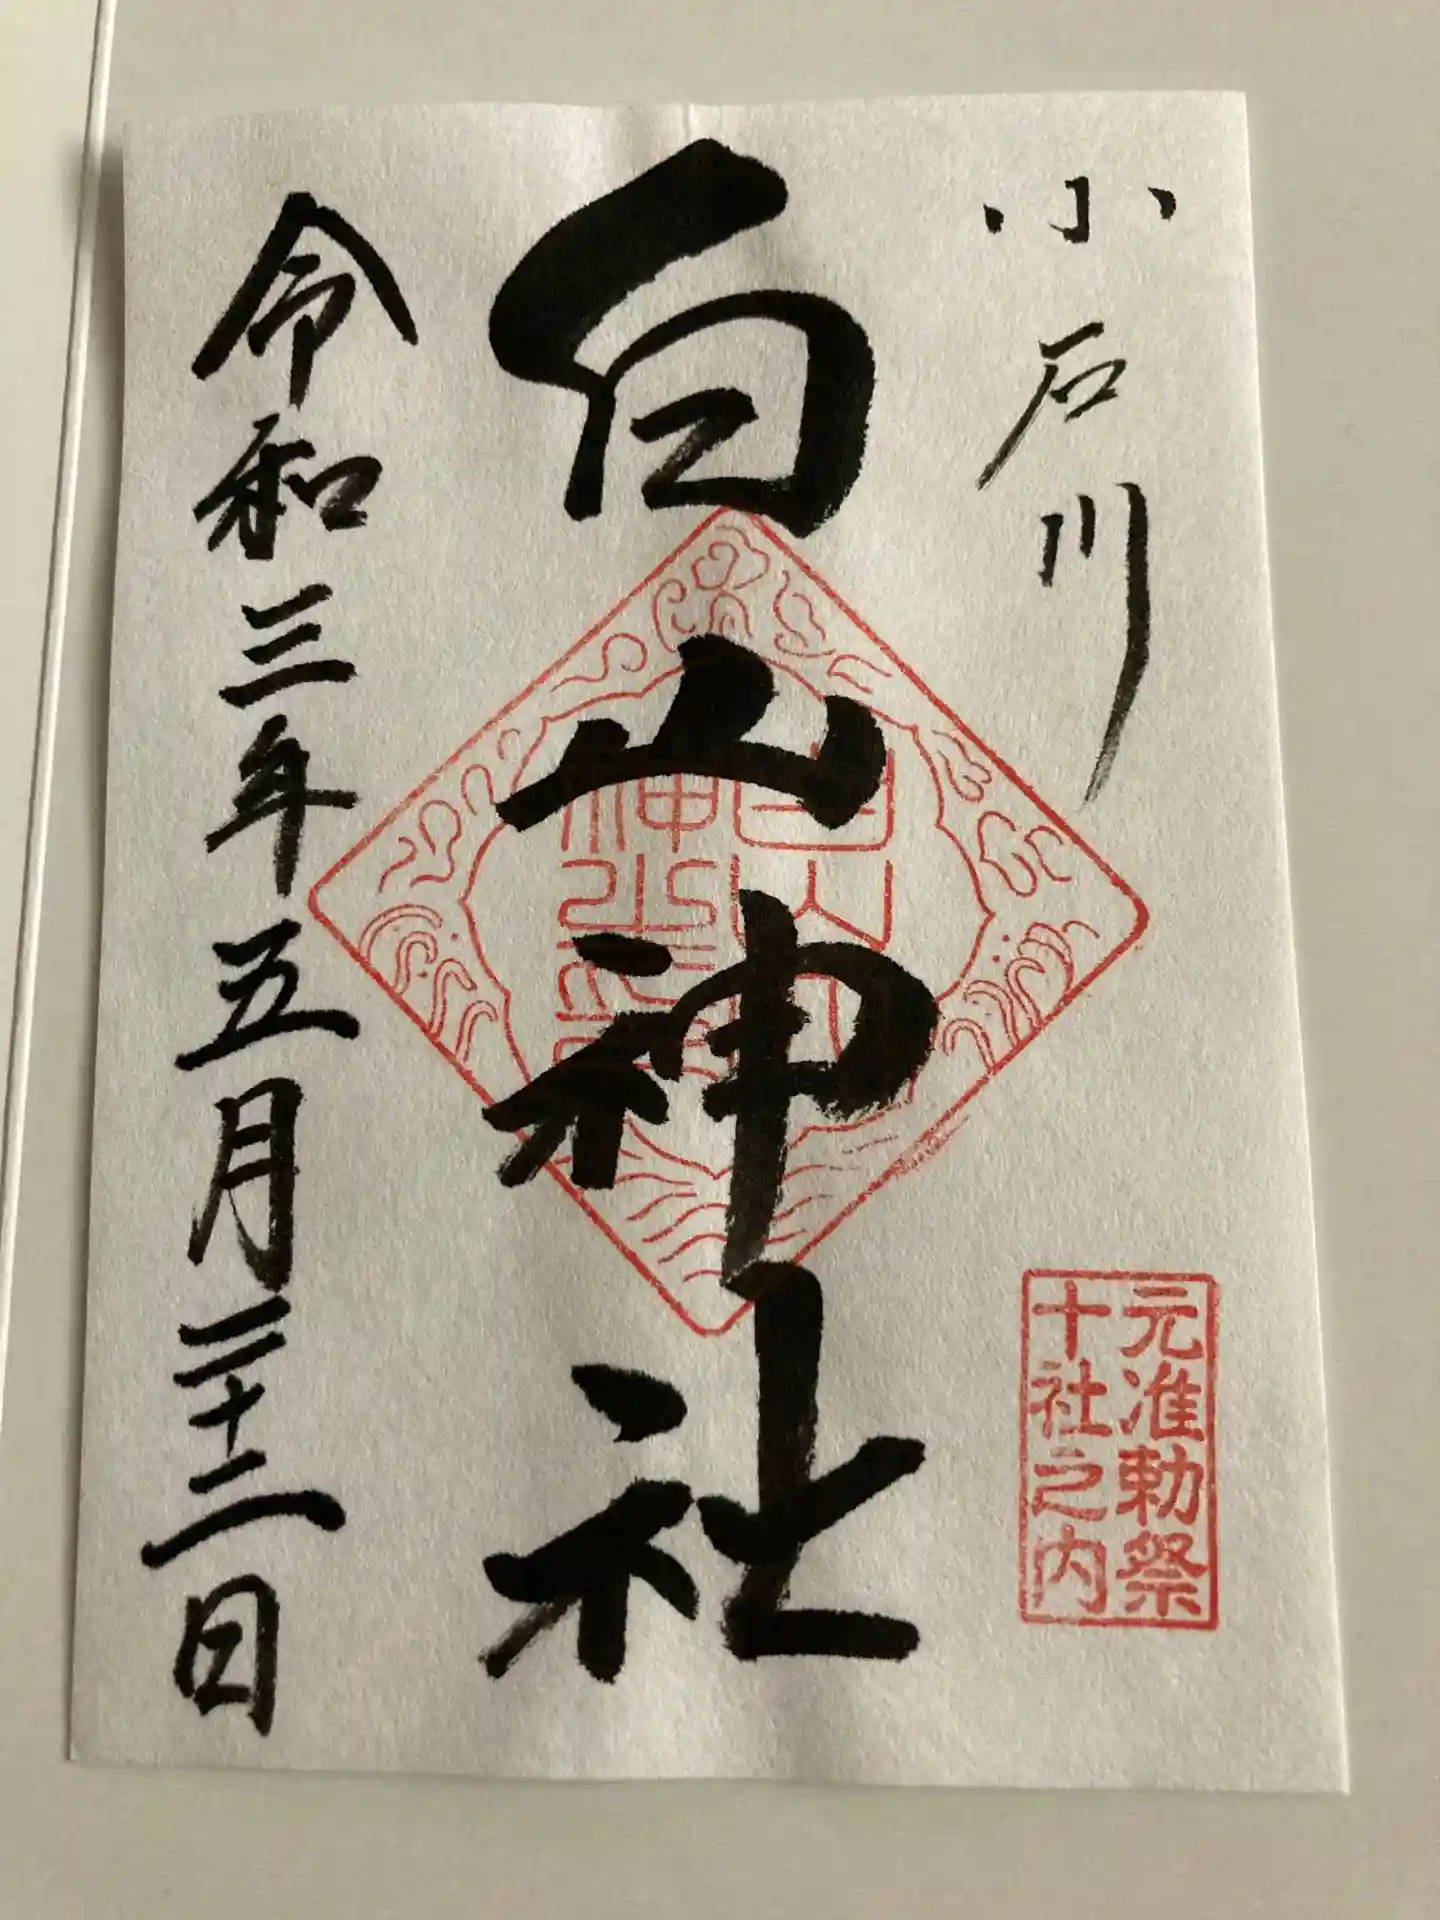 小石川
元准勅祭
十社之内
白山神社
令和三年五月二十二日